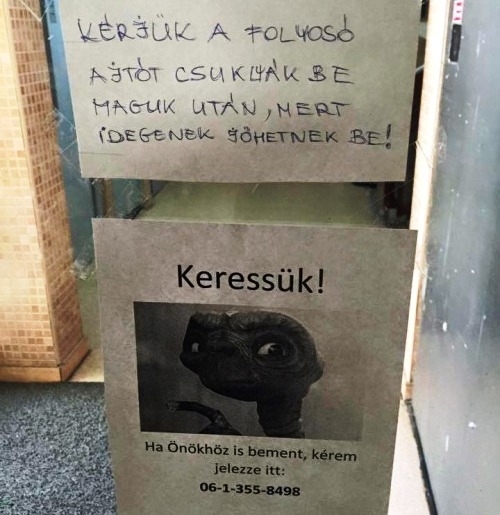 KÉRJÜK A FOLYOSÓ
AJTÓT CSUKJÁK BE
MAGUK UTÁN, MERT
IDEGENEK JÖHETNEK BE!
Keressük!
Ha Önökhöz is bement, kérem
jelezze itt:
06-1-355-8498